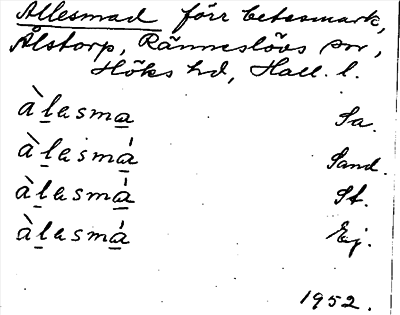 Allesmad förr betesmark,
Ålstorp, Ränneslövs sn,
Höks hd, Hall. l.
àl̲asma̲ Sa.
àl̲asmá̲ Sand.
àl̲asmá̲ St.
àl̲asmá̲ Ej.
1952.